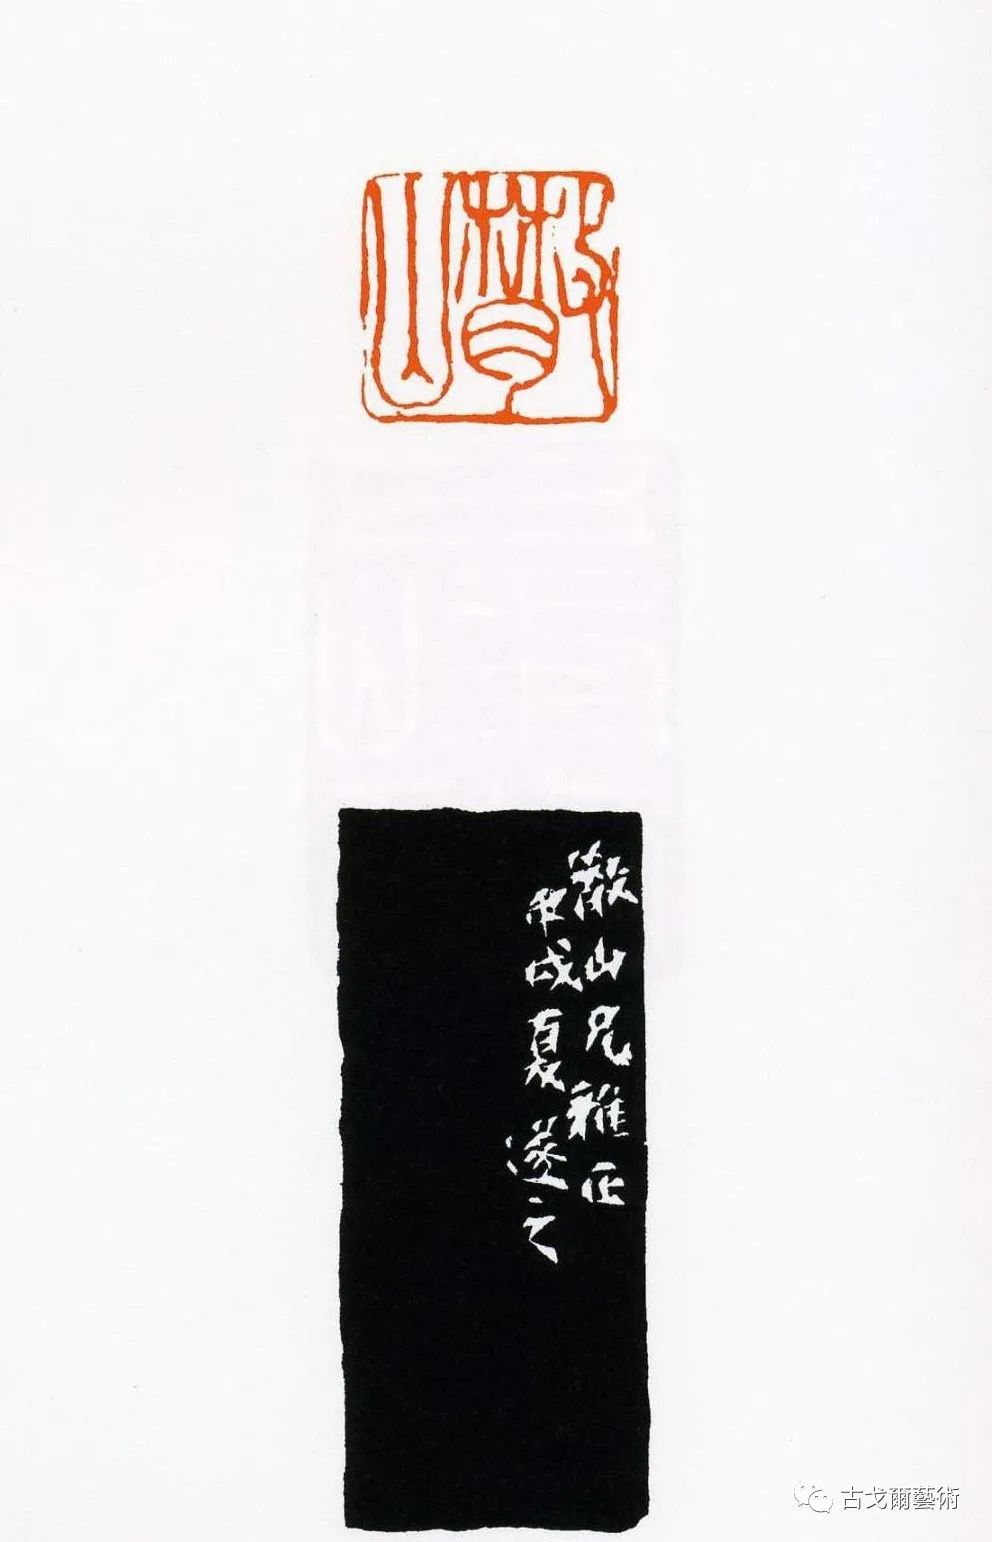 散山
散山兄雅正
甲戌夏遂之
古戈爾藝術